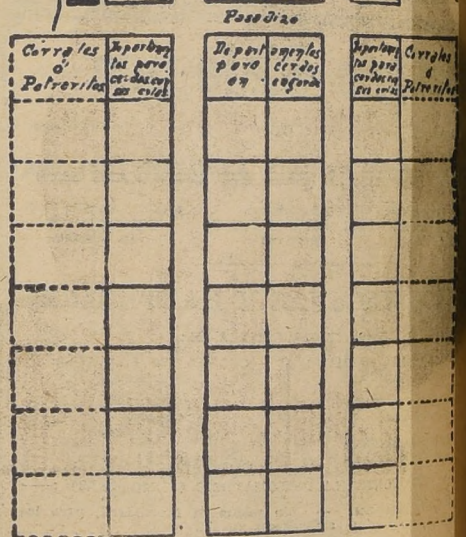 Pasadizo
Corrales
ó
Potreritos
Departamen
tos para
cerdos con
sus crias
Depart amentos
para cerdos
en engorda
Departamen
tos para
cerdos con
sus crias
Corrales
ó
Potreritos